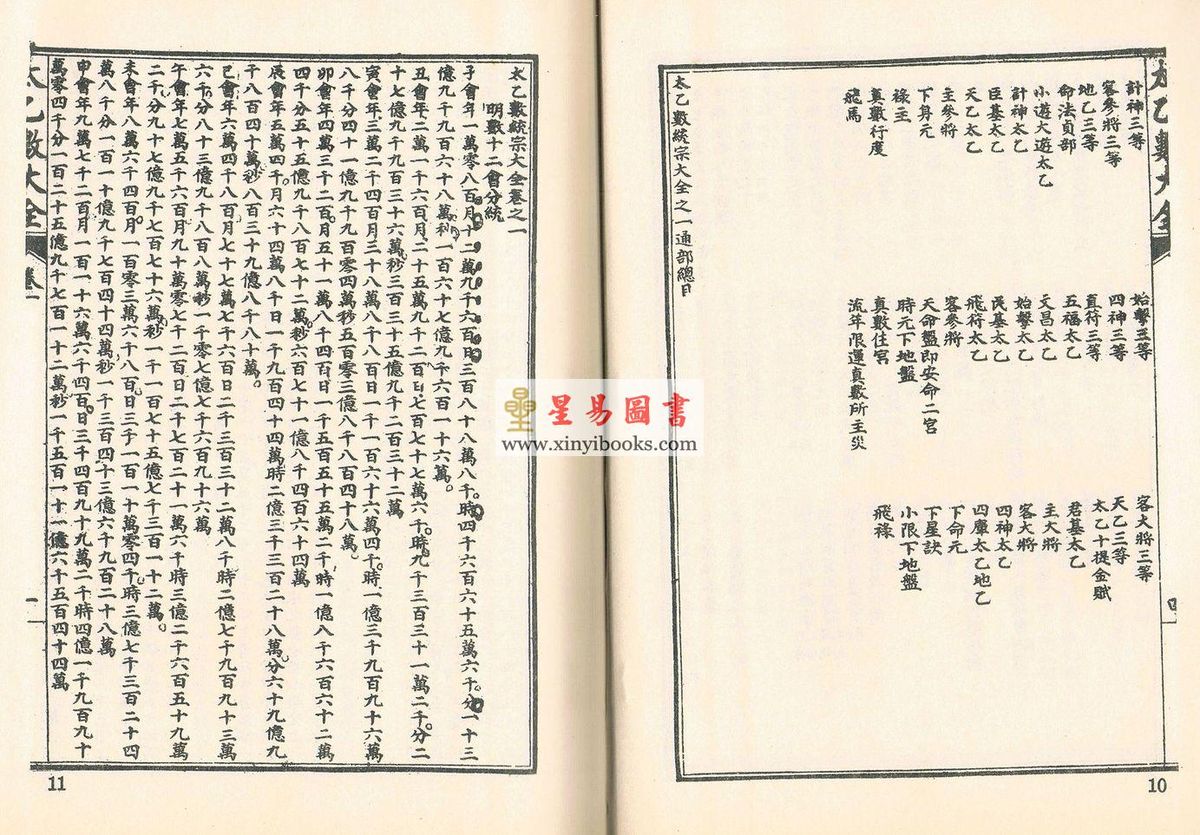 太乙數大全
計神三等
客參將三等
地乙三等
命法貞部
小遊大遊太乙
計神太乙
臣基太乙
天乙太乙
主參將
下身元
祿主
真數行度
飛馬
始擊三等
四神三等
直符三等
五福太乙
文昌太乙
始擊太乙
民基太乙
飛符太乙
客參將
天命盤即安命二宮
時元下地盤
真數住宮
流年限運真數所主災
客大將三等
天乙三等
太乙十提金賦
君基太乙
主大將
客大將
四神太乙
四庫太乙地乙
下命元
下星訣
小限下地盤
飛祿
太乙數統宗大全之一通部總目
四
10
太乙數統宗大全卷之一
明數十二會分統
子會年一萬零八百月十二萬九千六百日三百八十八萬八千時四千六百六十五萬六千分一十三
億九千九百六十八萬秒一百六十七億九千六百一十六萬
丑會年二萬一千六百月二十五萬九千二百日七百七十七萬六千時九千三百三十一萬二千分二
十七億九千九百三十六萬秒三百三十五億九千二百三十二萬
寅會年三萬二千四百月三十八萬八千八百日一千一百六十六萬四千時一億三千九百九十六萬
八千分四十一億九千九百零四萬秒五百零三億八千八百四十八萬
卯會年四萬三千二百月五十一萬八千四百日一千五百五十五萬二千時一億八千六百六十二萬
四千分五十五億九千八百七十二萬秒六百七十一億八千四百六十四萬
辰會年五萬四千月六十四萬八千日一千九百四十四萬時二億三千三百二十八萬分六十九億九
千八百四十萬秒八百三十九億八千八十萬
巳會年六萬四千八百月七十七萬七千六百日二千三百三十二萬八千時二億七千九百九十三萬
六千分八十三億九千八百八萬秒一千零七億七千六百九十六萬
午會年七萬五千六百月九十萬零七千二百日二千七百二十一萬六千時三億二千六百五十九萬
二千分九十七億九千七百七十六萬秒一千一百七十五億七千三百一十二萬
未會年八萬六千四百月一百零三萬六千八百日三千一百一十萬零四千時三億七千三百二十四
萬八千分一百一十億九千七百四十四萬秒一千三百四十三億六千九百二十八萬
申會年九萬七千二百月一百一十六萬六千四百日三千四百九十九萬二千時四億一千九百九十
萬零四千分一百二十五億九千七百一十二萬秒一千五百一十一億六千五百四十四萬
太乙數大全
卷一
一
11
星易圖書
www.xinyibooks.com